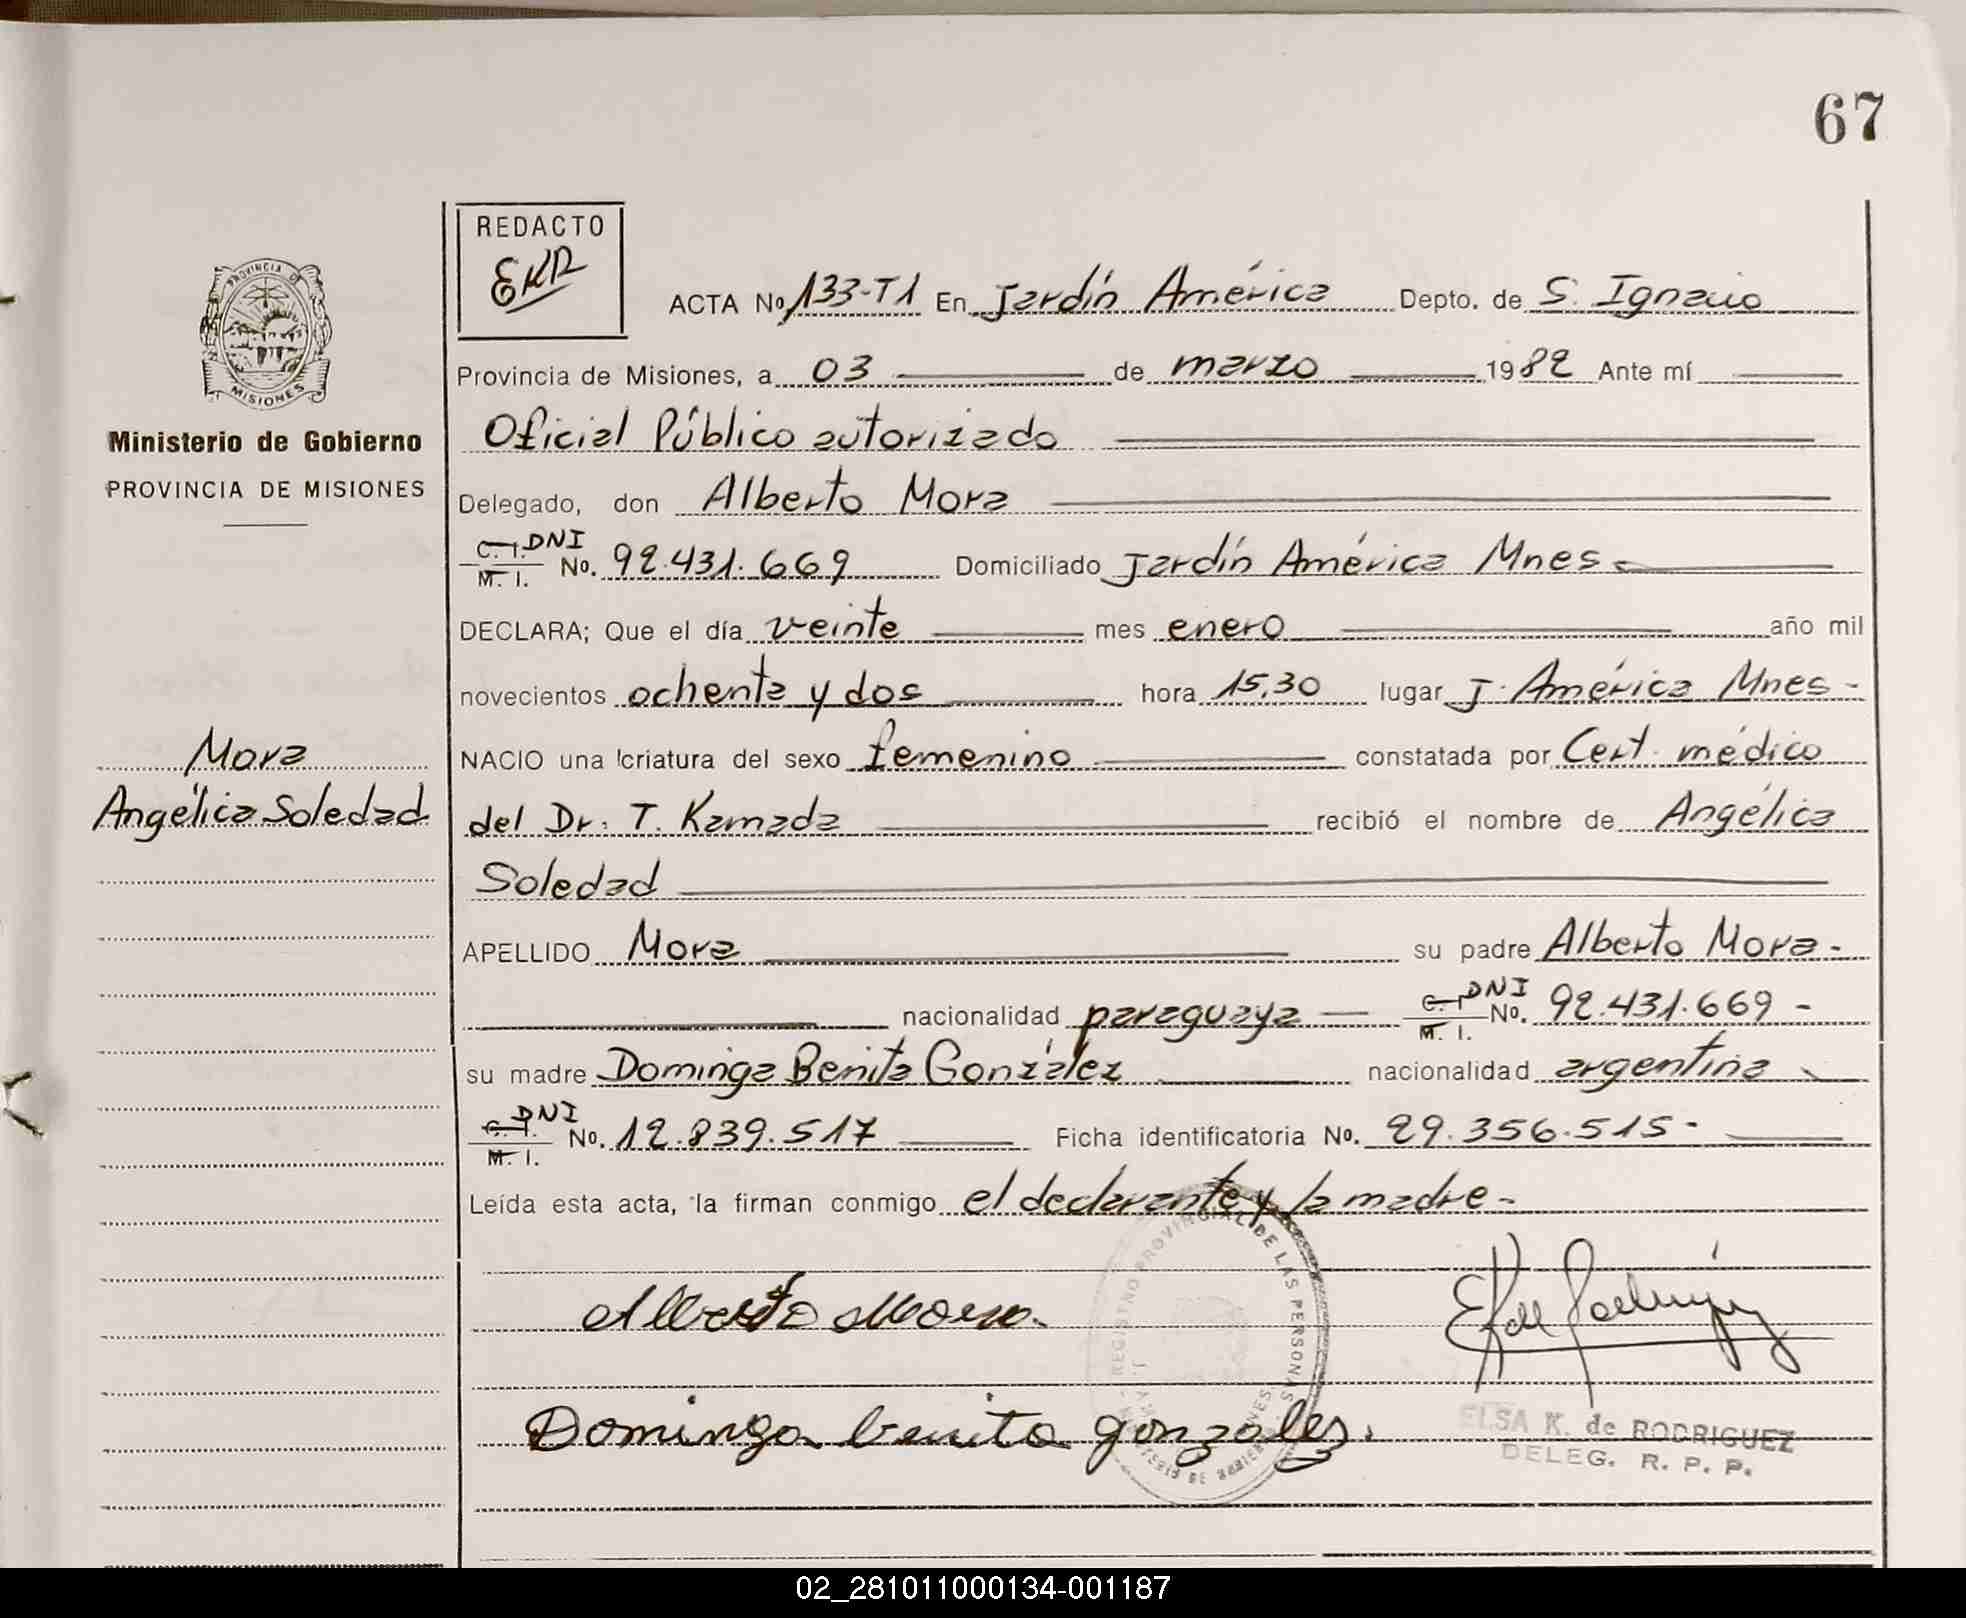 67
REDACTO
EKR
ACTA No 133-T1 En Jardín América Depto. de S. Ignacio
PROVINCIA DE
MISIONES
Provincia de Misiones, a 03 de marzo 1982 Ante mí
Ministerio de Gobierno
Oficial Público autorizado
PROVINCIA DE MISIONES
Delegado, don Alberto Mora
C. I. DNI
M. I. No. 92.431.669 Domiciliado Jardín América Mnes
DECLARA; Que el día veinte mes enero año mil
novecientos ochenta y dos hora 15,30 lugar J. América Mnes-
Mora
NACIO una criatura del sexo femenino constatada por Cert. médico
Angélica Soledad
del Dr. T. Kamada recibió el nombre de Angélica
Soledad
APELLIDO Mora su padre Alberto Mora-
nacionalidad paraguaya C. I. DNI M. I. No. 92.431.669-
su madre Dominga Benita González nacionalidad argentina
C. I. DNI
M. I. No. 12.839.517 Ficha identificatoria No. 29.356.515-
Leída esta acta, la firman conmigo el declarante y la madre-
REGISTRO PROVINCIAL DE LAS PERSONAS
Alberto Mora.
Dominga benita gonzalez.
ELSA K. de RODRIGUEZ
DELEG. R. P. P.
02_281011000134-001187